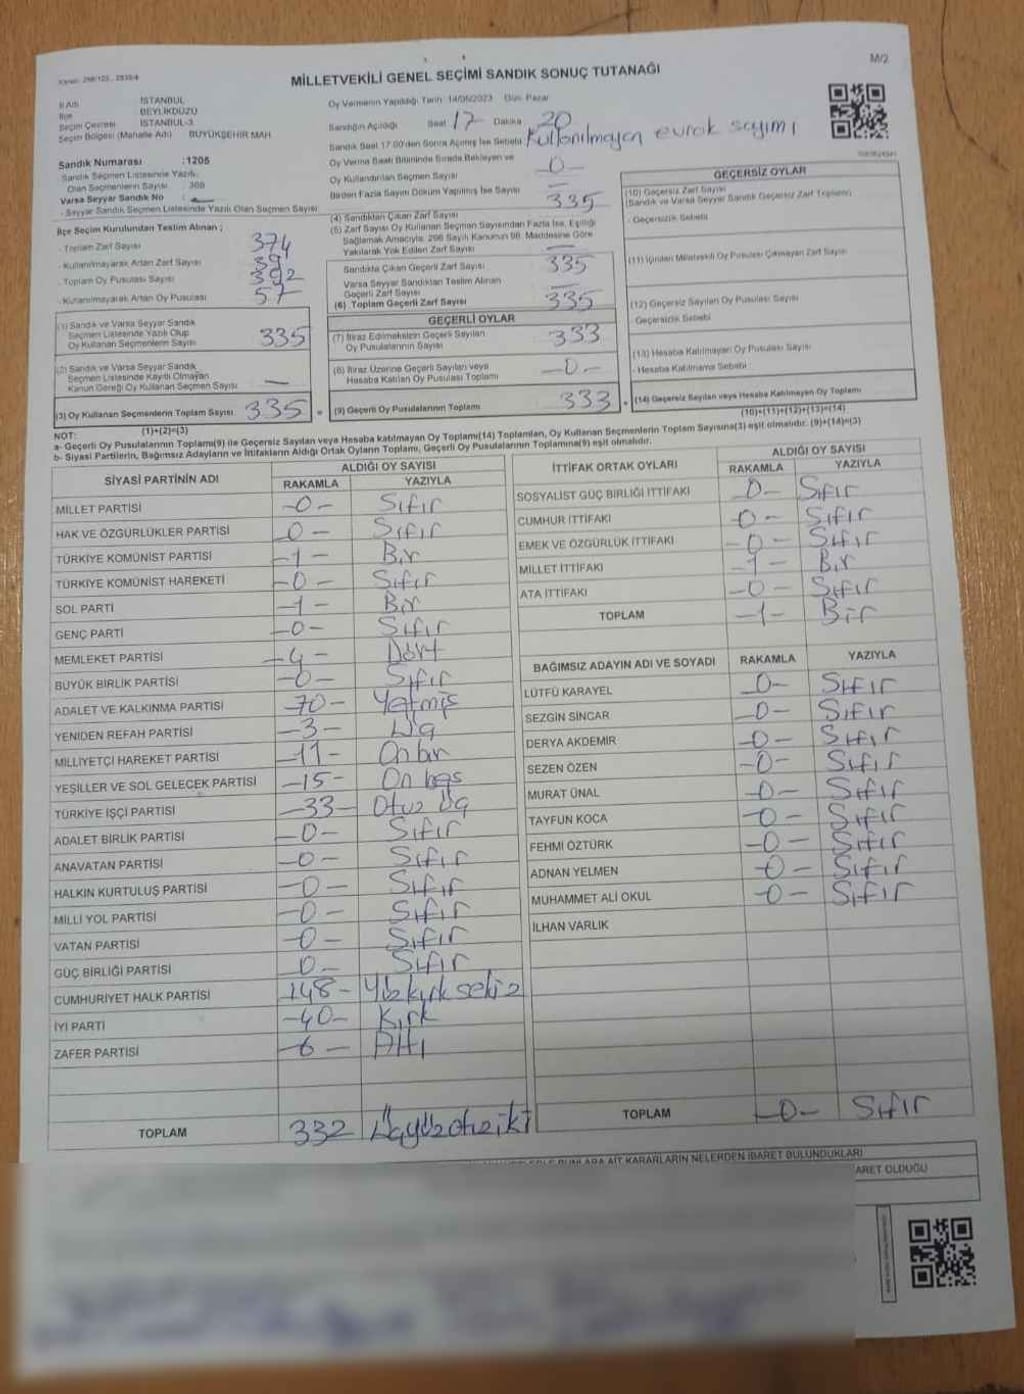 M/2
MİLLETVEKİLİ GENEL SEÇİMİ SANDIK SONUÇ TUTANAĞI
İli Adı İSTANBUL
İlçe BEYLİKDÜZÜ
Seçim Çevresi İSTANBUL-3
Seçim Bölgesi (Mahalle Adı) BÜYÜKŞEHİR MAH.
Oy Vermenin Yapıldığı Tarih: 14/05/2023 Gün: Pazar
Sandığın Açıldığı Saat 17 Dakika 20
Sandık Saat 17.00'den Sonra Açılmış İse Sebebi Kullanılmayan evrak sayımı
Sandık Numarası :1205
Sandık Seçmen Listesinde Yazılı
Olan Seçmenlerin Sayısı
Varsa Seyyar Sandık No
- Seyyar Sandık Seçmen Listesinde Yazılı Olan Seçmen Sayısı
Oy Verme Saati Bitiminde Sırada Bekleyen ve
Oy Kullandırılan Seçmen Sayısı -0-
Birden Fazla Sayım Döküm Yapılmış İse Sayısı
İlçe Seçim Kurulundan Teslim Alınan ;
- Toplam Zarf Sayısı 374
- Kullanılmayarak Artan Zarf Sayısı 39
- Toplam Oy Pusulası Sayısı 392
- Kullanılmayarak Artan Oy Pusulası 57
(1) Sandık ve Varsa Seyyar Sandık
Seçmen Listesinde Yazılı Olup
Oy Kullanan Seçmenlerin Sayısı 335
(2) Sandık ve Varsa Seyyar Sandık
Seçmen Listesinde Kayıtlı Olmayan
Kanun Gereği Oy Kullanan Seçmen Sayısı
(3) Oy Kullanan Seçmenlerin Toplam Sayısı 335
(1)+(2)=(3)
(4) Sandıktan Çıkan Zarf Sayısı 335
(5) Zarf Sayısı Oy Kullanan Seçmen Sayısından Fazla İse, Eşitliği
Sağlamak Amacıyla, 298 Sayılı Kanunun 98. Maddesine Göre
Yakılarak Yok Edilen Zarf Sayısı
Sandıkta Çıkan Geçerli Zarf Sayısı 335
Varsa Seyyar Sandıktan Teslim Alınan
Geçerli Zarf Sayısı
(6) Toplam Geçerli Zarf Sayısı 335
GEÇERLİ OYLAR
(7) İtiraz Edilmeksizin Geçerli Sayılan
Oy Pusulalarının Sayısı 333
(8) İtiraz Üzerine Geçerli Sayılan veya
Hesaba Katılan Oy Pusulası Toplamı -0-
(9) Geçerli Oy Pusulalarının Toplamı 333
GEÇERSİZ OYLAR
(10) Geçersiz Zarf Sayısı
(Sandık ve Varsa Seyyar Sandık Geçersiz Zarf Toplamı)
- Geçersizlik Sebebi
(11) İçinden Milletvekili Oy Pusulası Çıkmayan Zarf Sayısı
(12) Geçersiz Sayılan Oy Pusulası Sayısı
Geçersizlik Sebebi
(13) Hesaba Katılmayan Oy Pusulası Sayısı
- Hesaba Katılmama Sebebi
(14) Geçersiz Sayılan veya Hesaba Katılmayan Oy Toplamı
(10)+(11)+(12)+(13)=(14)
NOT:
a- Geçerli Oy Pusulalarının Toplamı(9) ile Geçersiz Sayılan veya Hesaba katılmayan Oy Toplamı(14) Toplamları, Oy Kullanan Seçmenlerin Toplam Sayısına(3) eşit olmalıdır. (9)+(14)=(3)
b- Siyasi Partilerin, Bağımsız Adayların ve İttifakların Aldığı Ortak Oyların Toplamı, Geçerli Oy Pusulalarının Toplamına(9) eşit olmalıdır.
SİYASİ PARTİNİN ADI ALDIĞI OY SAYISI
RAKAMLA YAZIYLA
MİLLET PARTİSİ -0- Sıfır
HAK VE ÖZGÜRLÜKLER PARTİSİ -0- Sıfır
TÜRKİYE KOMÜNİST PARTİSİ -1- Bir
TÜRKİYE KOMÜNİST HAREKETİ -0- Sıfır
SOL PARTİ -1- Bir
GENÇ PARTİ -0- Sıfır
MEMLEKET PARTİSİ -4- Dört
BÜYÜK BİRLİK PARTİSİ -0- Sıfır
ADALET VE KALKINMA PARTİSİ -70- Yetmiş
YENİDEN REFAH PARTİSİ -3- Üç
MİLLİYETÇİ HAREKET PARTİSİ -11- Onbir
YEŞİLLER VE SOL GELECEK PARTİSİ -15- On beş
TÜRKİYE İŞÇİ PARTİSİ -33- Otuz üç
ADALET BİRLİK PARTİSİ -0- Sıfır
ANAVATAN PARTİSİ -0- Sıfır
HALKIN KURTULUŞ PARTİSİ -0- Sıfır
MİLLİ YOL PARTİSİ -0- Sıfır
VATAN PARTİSİ -0- Sıfır
GÜÇ BİRLİĞİ PARTİSİ -0- Sıfır
CUMHURİYET HALK PARTİSİ -148- Yüz kırk sekiz
İYİ PARTİ -40- Kırk
ZAFER PARTİSİ -6- Altı
TOPLAM 332 Üçyüzotuziki
İTTİFAK ORTAK OYLARI ALDIĞI OY SAYISI
RAKAMLA YAZIYLA
SOSYALİST GÜÇ BİRLİĞİ İTTİFAKI -0- Sıfır
CUMHUR İTTİFAKI -0- Sıfır
EMEK VE ÖZGÜRLÜK İTTİFAKI -0- Sıfır
MİLLET İTTİFAKI -1- Bir
ATA İTTİFAKI -0- Sıfır
TOPLAM -1- Bir
BAĞIMSIZ ADAYIN ADI VE SOYADI RAKAMLA YAZIYLA
LÜTFÜ KARAYEL -0- Sıfır
SEZGİN SİNCAR -0- Sıfır
DERYA AKDEMİR -0- Sıfır
SEZEN ÖZEN -0- Sıfır
MURAT ÜNAL -0- Sıfır
TAYFUN KOCA -0- Sıfır
FEHMİ ÖZTÜRK -0- Sıfır
ADNAN YELMEN -0- Sıfır
MUHAMMET ALİ OKUL -0- Sıfır
İLHAN VARLIK
TOPLAM -0- Sıfır
BUNLARA AİT KARARLARIN NELERDEN İBARET BULUNDUKLARI